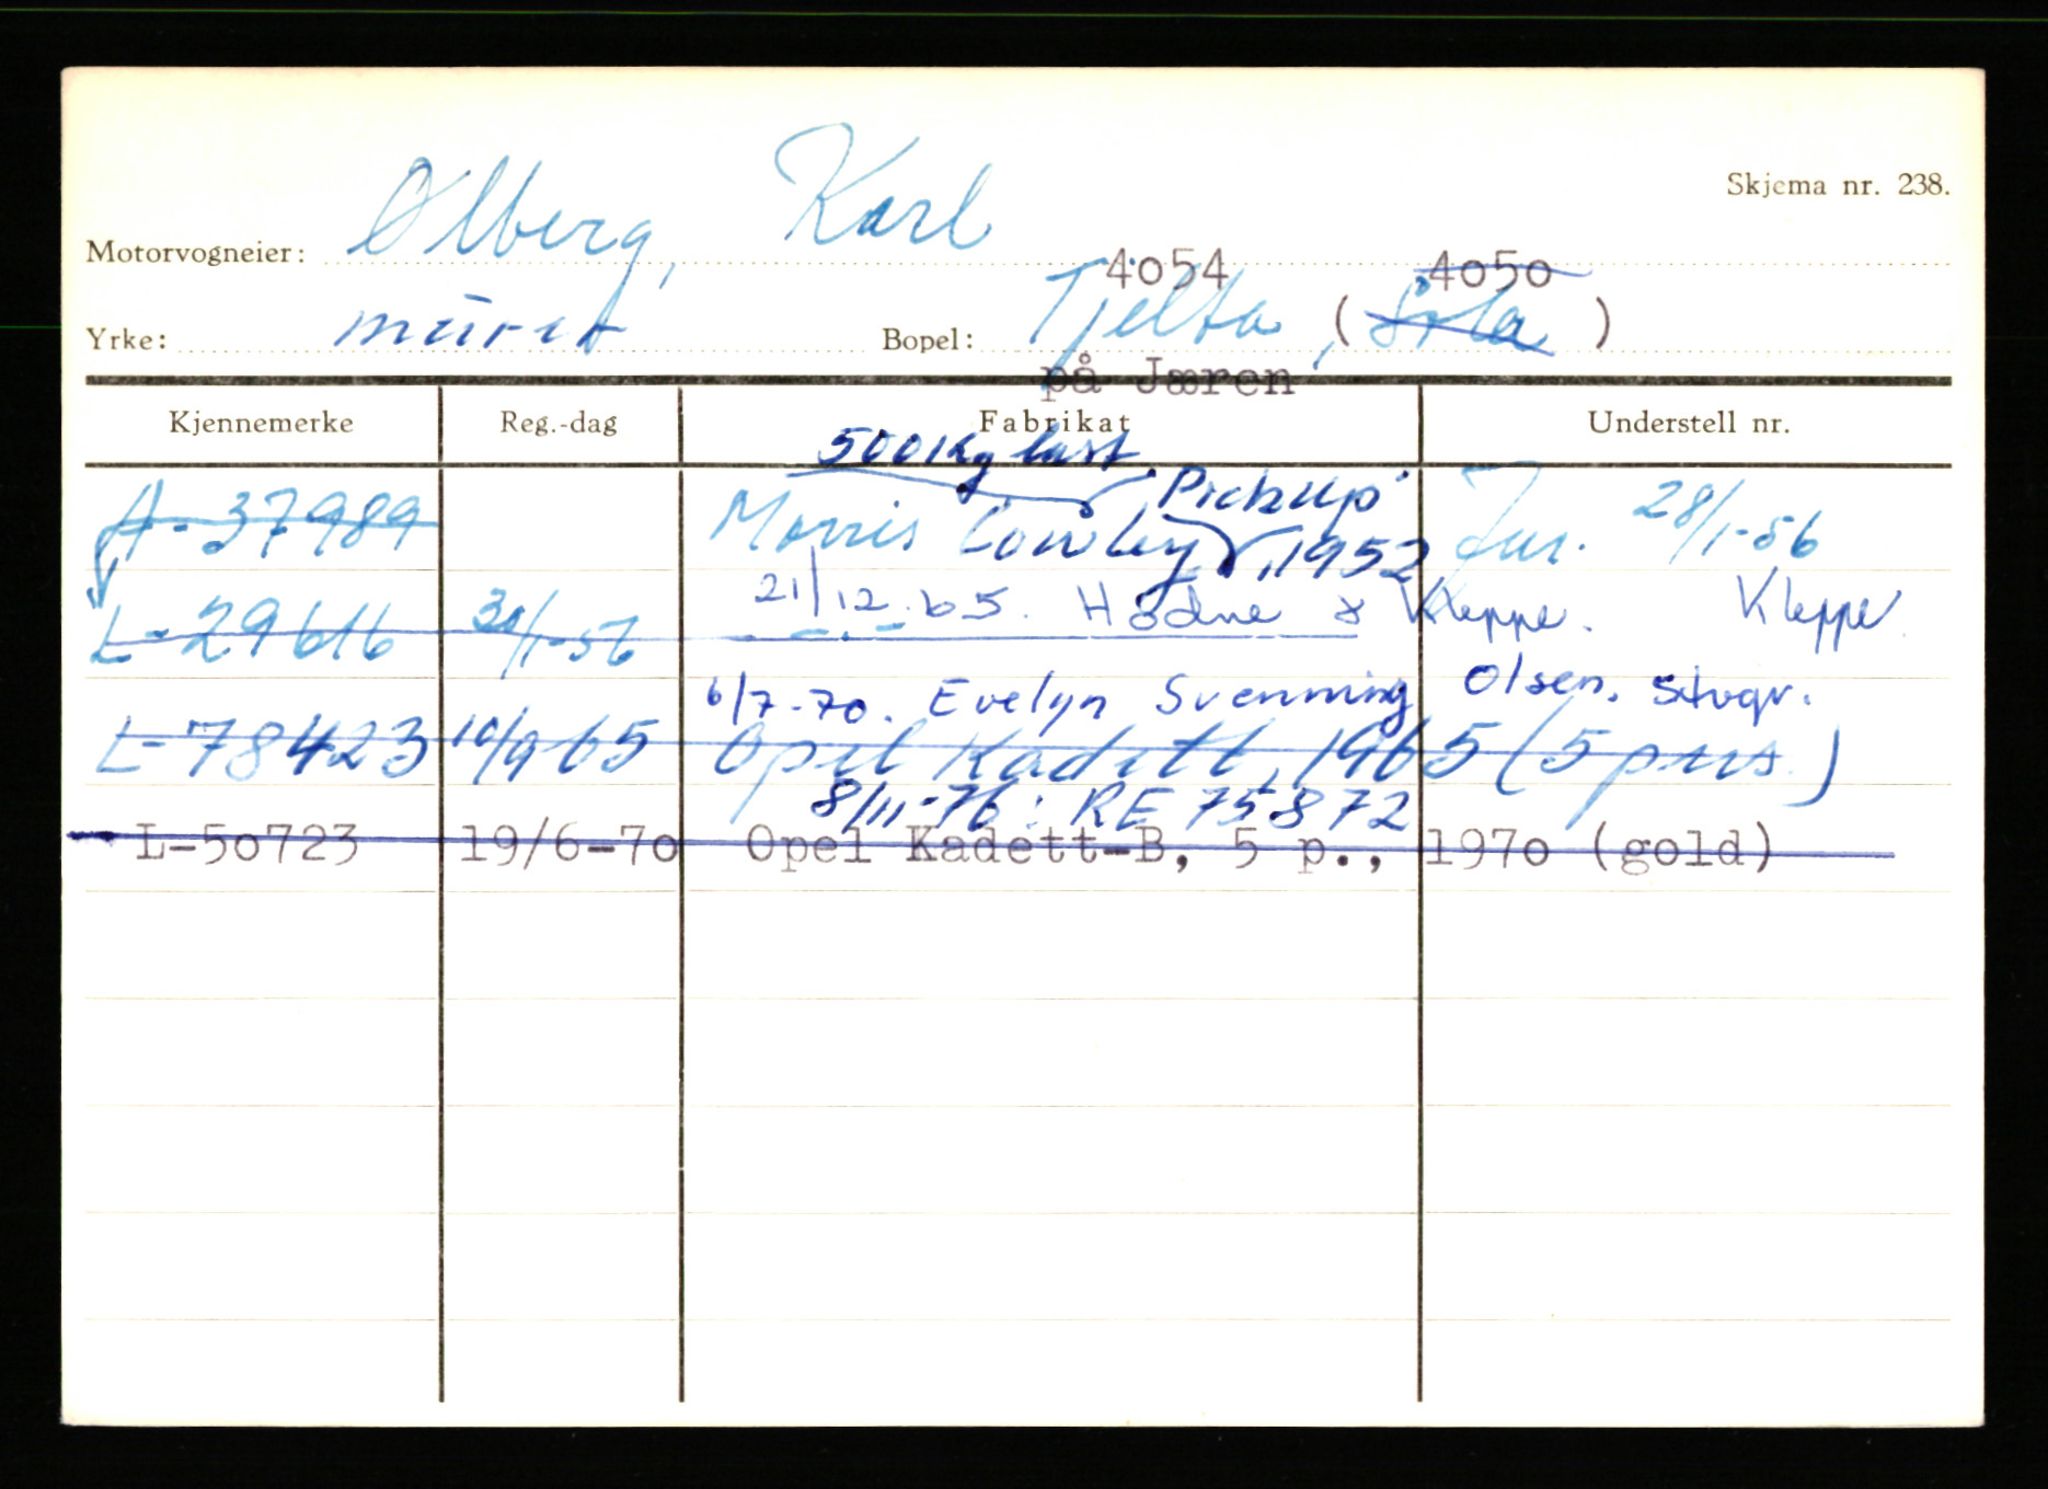 Skjema nr. 238.
Motorvogneier: Ølberg, Karl
4054 4050
Yrke: murer Bopel: Tjelta, (Sola)
på Jæren
Kjennemerke Reg.-dag Fabrikat Understell nr.
500 kg last
"Pickup"
A-37989 Morris Cowley, 1952 28/1-56
21/12.65. Hodne & Kleppe. Kleppe
L-29616 30/1-56
6/7-70. Evelyn Svenning Olsen. Stvgr.
L-78423 10/9-65 Opel Kadett, 1965 (5 pers.)
8/11-76: RE 75872
L-50723 19/6-70 Opel Kadett-B, 5 p., 1970 (gold)